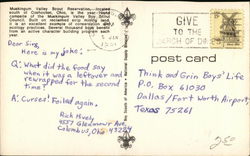 Muskingum Valley Scout Reservation, located
outside of Coshocton, Ohio, is the year-round
campsite of the Muskingum Valley Boy Scout
Council. Built on reclaimed strip mining land,
it is an excellent example of conservation and
camping
from an active character building program each
year.
GIVE
TO THE
MARCH OF DIMES
post card
Dear Sirs,
Here is my joke:
Q: What did the food say
when it was a leftover and
rewrapped for the second
time?
A: Curses! Foiled again.
Rick Hively
4557 Glenmawr Ave
Columbus, Oh 43224
Think and Grin Boys' Life
P.O. Box 61030
Dallas/Fort Worth Airport,
Texas 75261